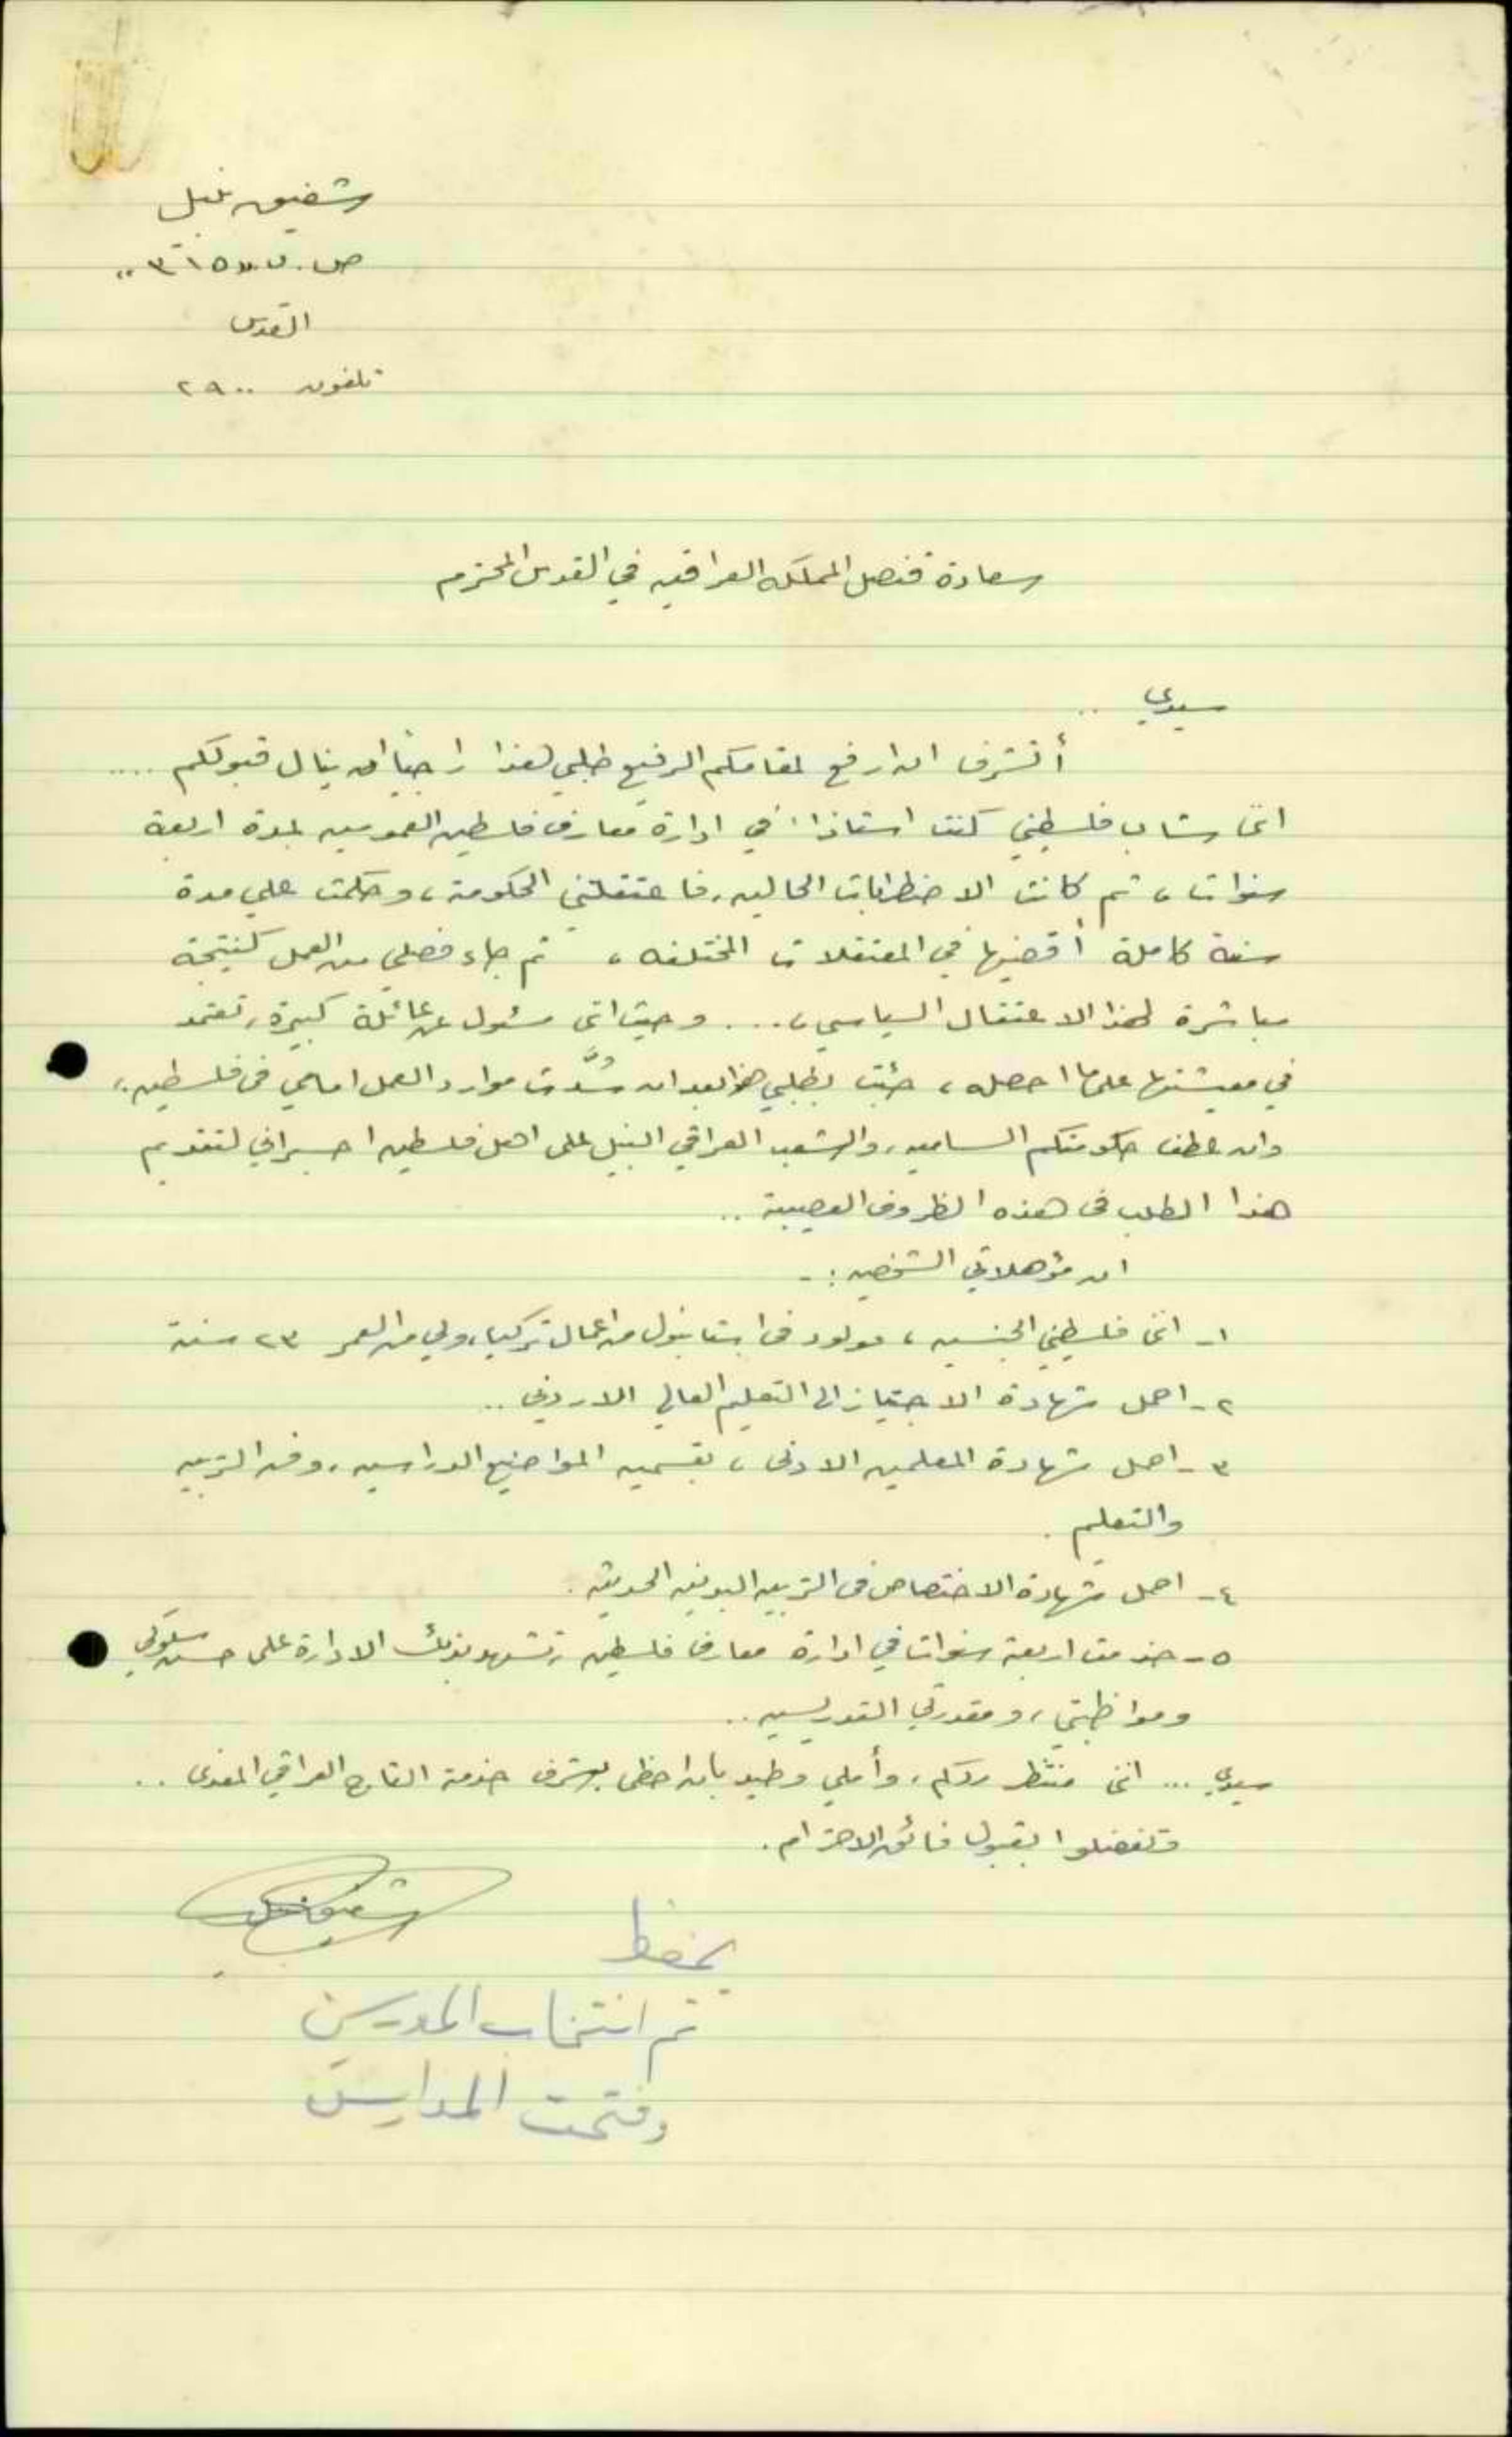 شفيق نبيل
ص. ب. ٣١٥
القدس
تلفون ٢٩٠٠
سعادة قنصل المملكه العراقيه في القدس المحترم
سيدي ..
أتشرف ان ارفع لمقامكم الرفيع طلبي هذا راجياً ان ينال قبولكم ....
انى شاب فلسطيني كنت استاذا في ادارة معارف فلسطين العموميه لمدة اربعة
سنوات، ثم كانت الاضطرابات الحاليه، فاعتقلتني الحكومة، وحكمت علي مدة
سنة كاملة أقضيها في المعتقلات المختلفه، ثم جاء فصلي من العمل كنتيجة
مباشرة لهذا الاعتقال السياسي، ... وحيث انى مسئول عن عائلة كبيرة، تعتمد
في معيشتها على ما احصله، جئت بطلبي هذا بعد ان سُدَّت موارد العمل امامي فى فلسطين،
وان عطف حكومتكم الساميه، والشعب العراقي النبيل على اهل فلسطين اجبراني لتقديم
هذا الطلب فى هذه الظروف العصيبة ..
ان مؤهلاتي الشخصيه :-
١- انى فلسطيني الجنسيه، مولود فى استانبول من اعمال تركيا، ولي من العمر ٢٣ سنة
٢- احمل شهادة الاجتياز الى التعليم العالي الاردني ..
٣- احمل شهادة المعلمين الادنى، بقسميه المواضيع الدراسيه، وفن التربيه
والتعليم.
٤- احمل شهادة الاختصاص فى التربيه البدنيه الحديثه.
٥- خدمت اربعة سنوات في ادارة معارف فلسطين، تشهد بذلك الادارة على حسن سلوكي
ومواظبتي، ومقدرتي التدريسيه ..
سيدي ... انى منتظر ردكم، وأملي وطيد بان احظى بشرف خدمة التاج العراقي المفدى ..
وتفضلوا بقبول فائق الاحترام.
يحفظ
تم انتخاب المدرسين
وفتحت المدارس